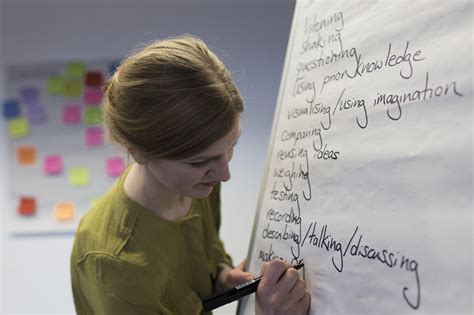 listening
shaking
questioning
using prior knowledge
visualising/using imagination
comparing
revising ideas
weighing
testing
recording
describing/talking/discussing
making